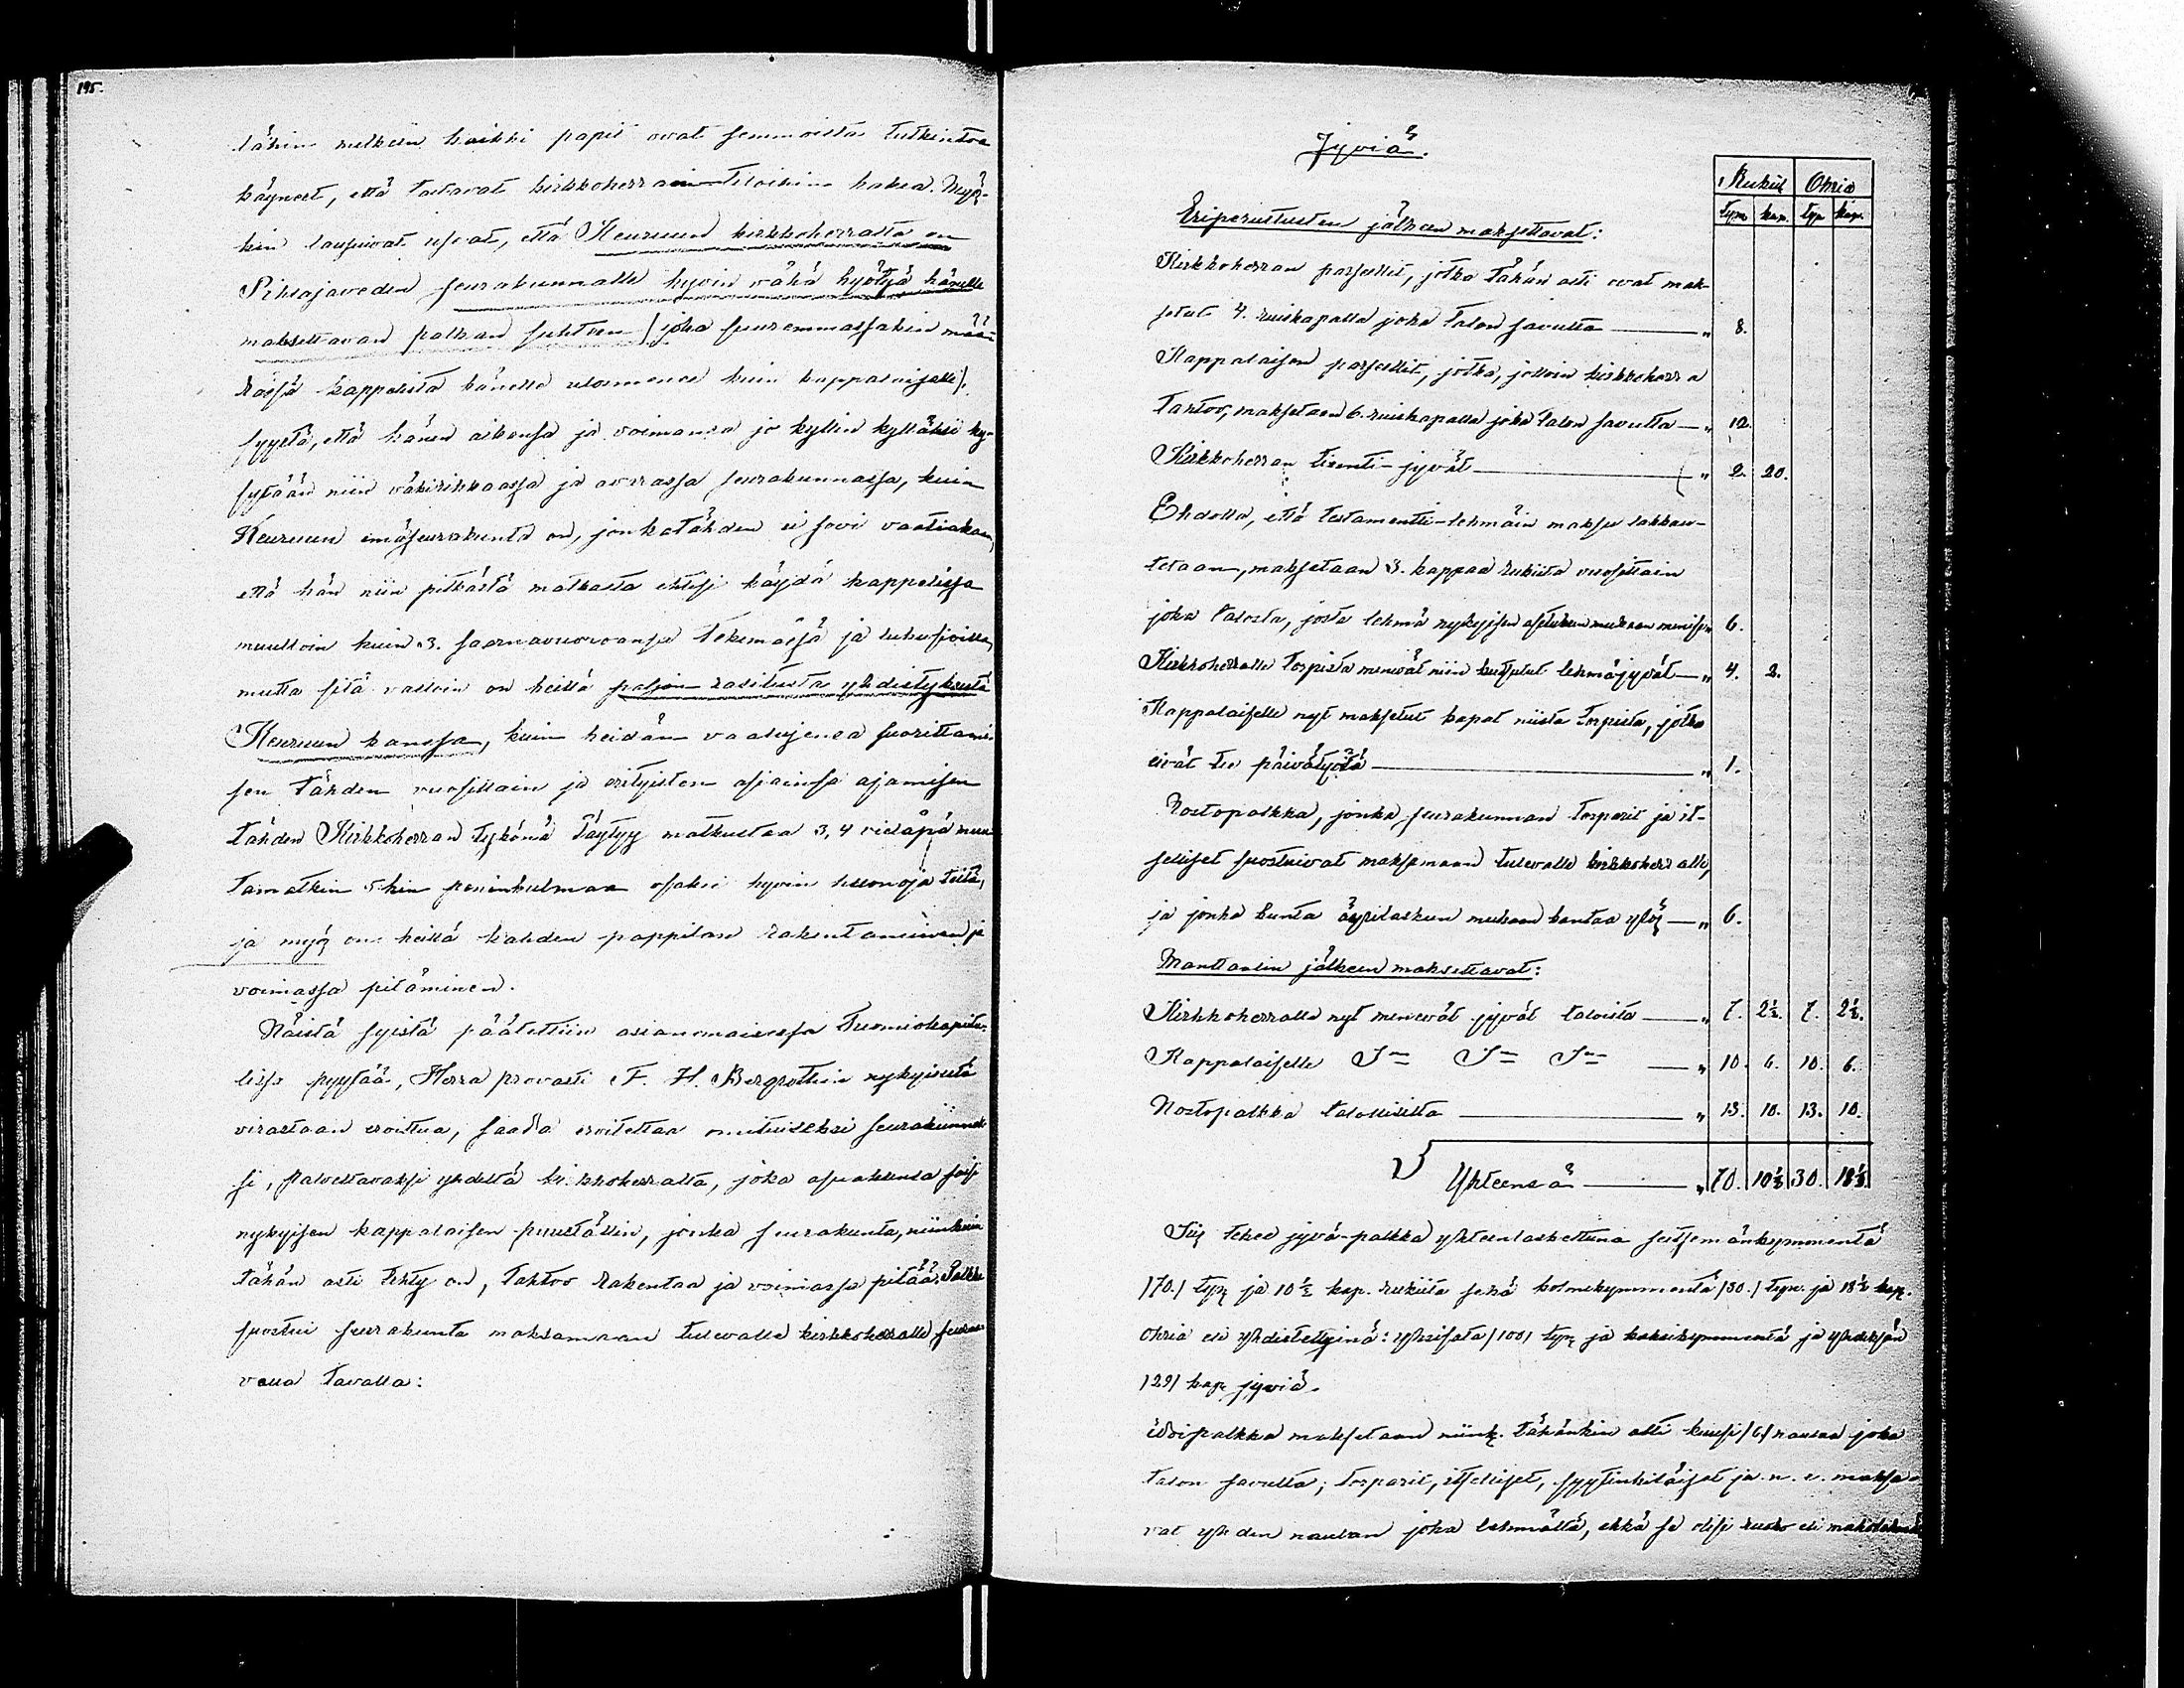 195.
lähin melkein kaikki papit ovat semmoista tutkintoa
käyneet, että taitavat kirkkoherrain tiloihin hakea. Myös-
kin lausuivat usiat, että Keuruun kirkkoherrasta on
Pihlajaveden seurakunnalle hyvin vähä hyötyä hänelle
maksettavan palkan suhteen /: joka suuremmassakin mää-
rässä kappelista hänelle ulosmenee kuin kappalaiselle :/
syystä, että hänen aikansa ja voimansa jo kyllin kylläksi ky-
sytään niin väkirikkaassa ja avarassa seurakunnassa, kuin
Keuruun emäseurakunta on, jonkatähden ei sovi vaatiakaan,
että hän niin pitkästä matkasta ehtisi käydä kappelissa
muulloin kuin 3. saarnavuoroansa tekemässä ja lukusioilla,
mutta sitä vastoin on heillä paljon rasitusta yhdistyksestä
Keuruun kanssa, kuin heidän vaalijensa suorittami-
sen tähden vuosittain ja erityisten asiainsa ajamisen
tähden Kirkkoherran tykönä täytyy matkustaa 3, 4 vieläpä muu-
tamatkin 5hin peninkulmaa osaksi hyvin huonoja teitä,
ja myös on heillä kahden pappilan rakentaminen ja
voimassa pitäminen.
Näistä syistä päätettiin asianomaisessa Tuomiokapitu-
lissa pyytää, Herra provasti F. H. Bergrothin nykyisestä
virastaan erottua, saada eroitettaa omituiseksi seurakunnak-
si, palveltavaksi yhdeltä kirkkoherralta, joka asuaksensa saisi
nykyisen kappalaisen puuställin, jonka seurakunta, niinkuin
tähän asti tehty on, tahtoo rakentaa ja voimassa pitää. Palkkaa
suostui seurakunta maksamaan tulevalle kirkkoherralle seuraa-
valla tavalla:
Jyviä.
Rukiit Ohria
tyn. kap. tyn. kap.
Eriperustusten jälkeen maksettavat:
Kirkkoherran parselit, jotka tähän asti ovat mak-
setut 4. ruiskapalla joka talon savulta — „ 8.
Kappalaisen parselit, jotka, jolloin kirkkoherra
tahtoo, maksetaan 6. ruiskapalla joka talon savulta — „ 12.
Kirkkoherran tienti-jyvät — „ 2. 20.
Ehdolla, että testamentti-lehmäin maksu lakkau-
tetaan, maksetaan 3. kappaa rukiita vuosittain
joka talosta, josta lehmä nykyisen asetuksen mukaan menisi „ 6.
Kirkkoherralle torpista menevät niin kutsutut lehmäjyvät — „ 4. 2.
Kappalaiselle nyt maksetut kapat niistä torpista, jotka
eivät tee päivätyötä — „ 1.
Nostopalkka, jonka seurakunnan torparit ja it-
selliset suostuivat maksamaan tulevalle kirkkoherralle,
ja jonka kunta äyrilaskun mukaan kantaa ylös — „ 6.
Manttaalin jälkeen maksettavat:
Kirkkoherralle nyt menevät jyvät taloista — „ 7. 2½. 7. 2½.
Kappalaiselle — „ 10. 6. 10. 6.
Nostopalkka talollisilta — „ 13. 10. 13. 10.
Yhteensä — „ 70. 10½ 30. 18½
Siis tekee jyvä-palkka yhteenlaskettuna seitsemänkymmentä
/70./ tyn. ja 10½ kap. rukiita sekä kolmekymmentä /30./ tyn. ja 18½ kap.
ohria eli yhdistettyinä: yksisata /100/ tyn. ja kaksikymmentä ja yhdeksän
/29/ kap. jyviä.
Voipalkka maksetaan niink. tähänkin asti kuusi /6/ naulaa joka
talon savulta; torparit, itselliset, syytinkiläiset ja n. e. maksa-
vat yhden naulan joka lehmältä, ehkä se olisi